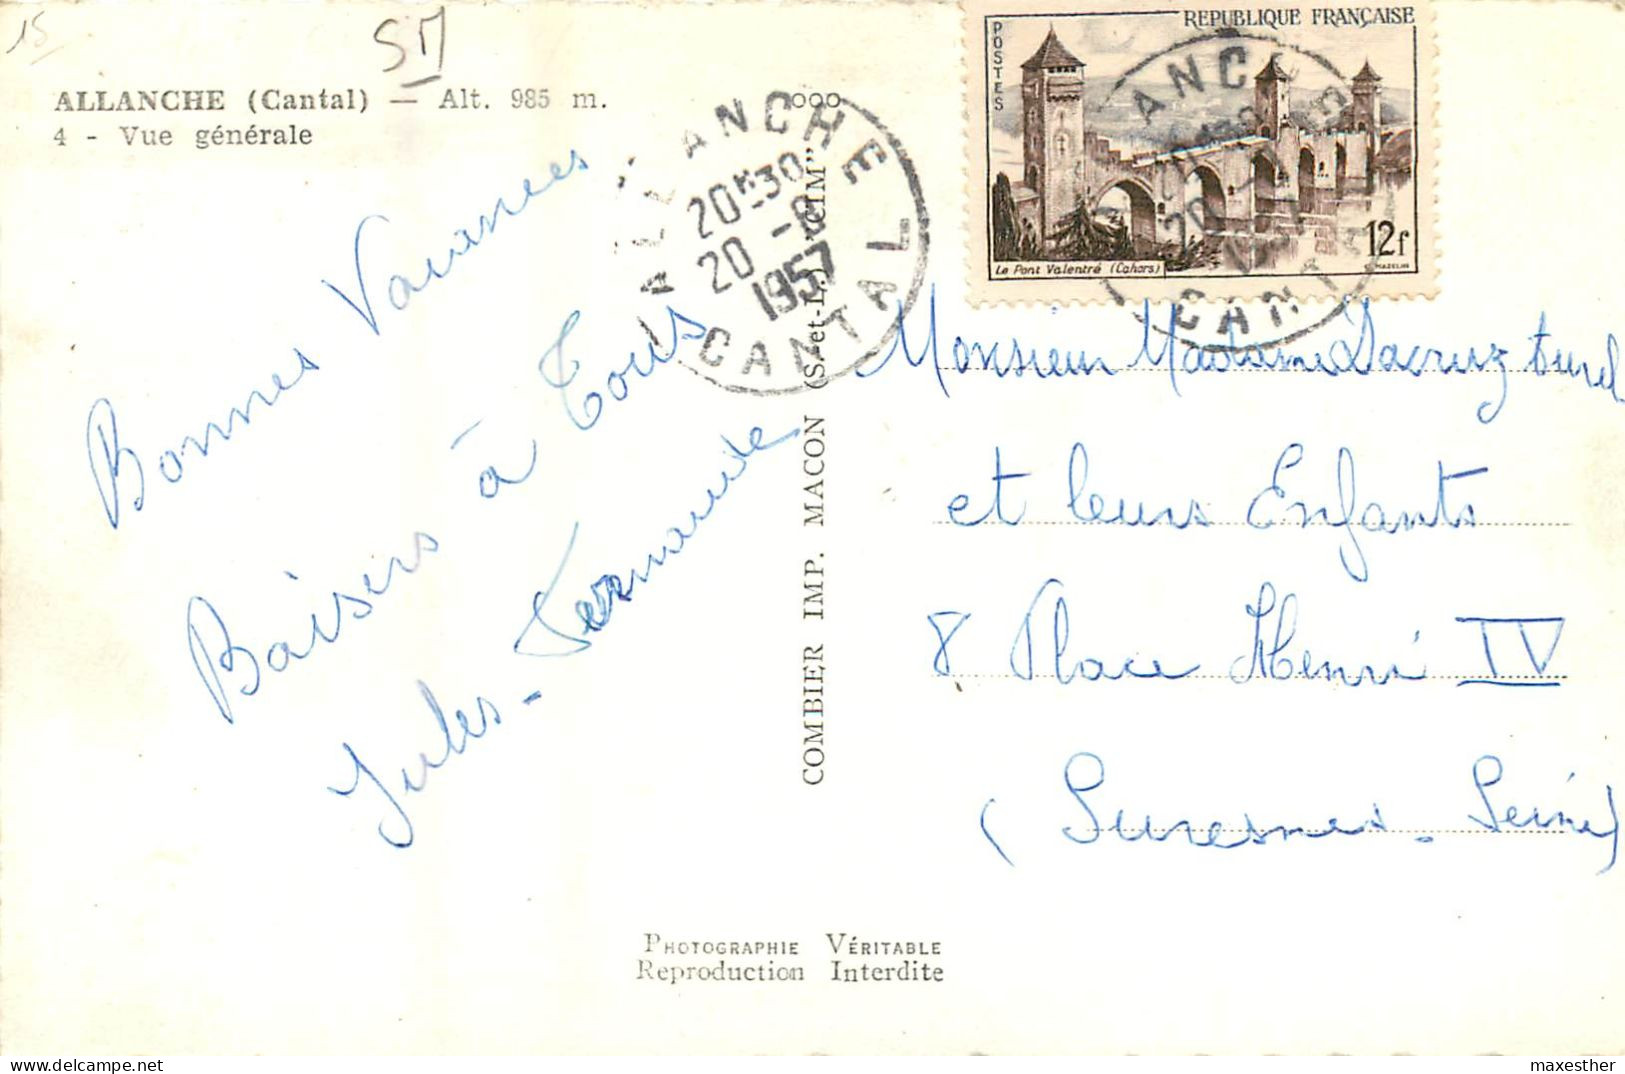 15
SM
ALLANCHE (Cantal) — Alt. 985 m.
4 - Vue générale
Bonnes Vacances
Baisers à Tous
Jules - Fernande
ALLANCHE
20H30
20 -8
1957
CANTAL
COMBIER IMP. MACON (S.-et-L.) "CIM"
REPUBLIQUE FRANÇAISE
POSTES
Le Pont Valentré (Cahors)
12f
MAZELIN
Monsieur Madame Dacruz
et leurs Enfants
8 Place Henri IV
(Suresnes - Seine)
PHOTOGRAPHIE VÉRITABLE
Reproduction Interdite
maxesther